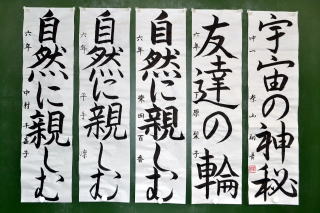 宇宙の神秘
中一
友達の輪
六年
自然に親しむ
六年
自然に親しむ
六年
自然に親しむ
六年 中村